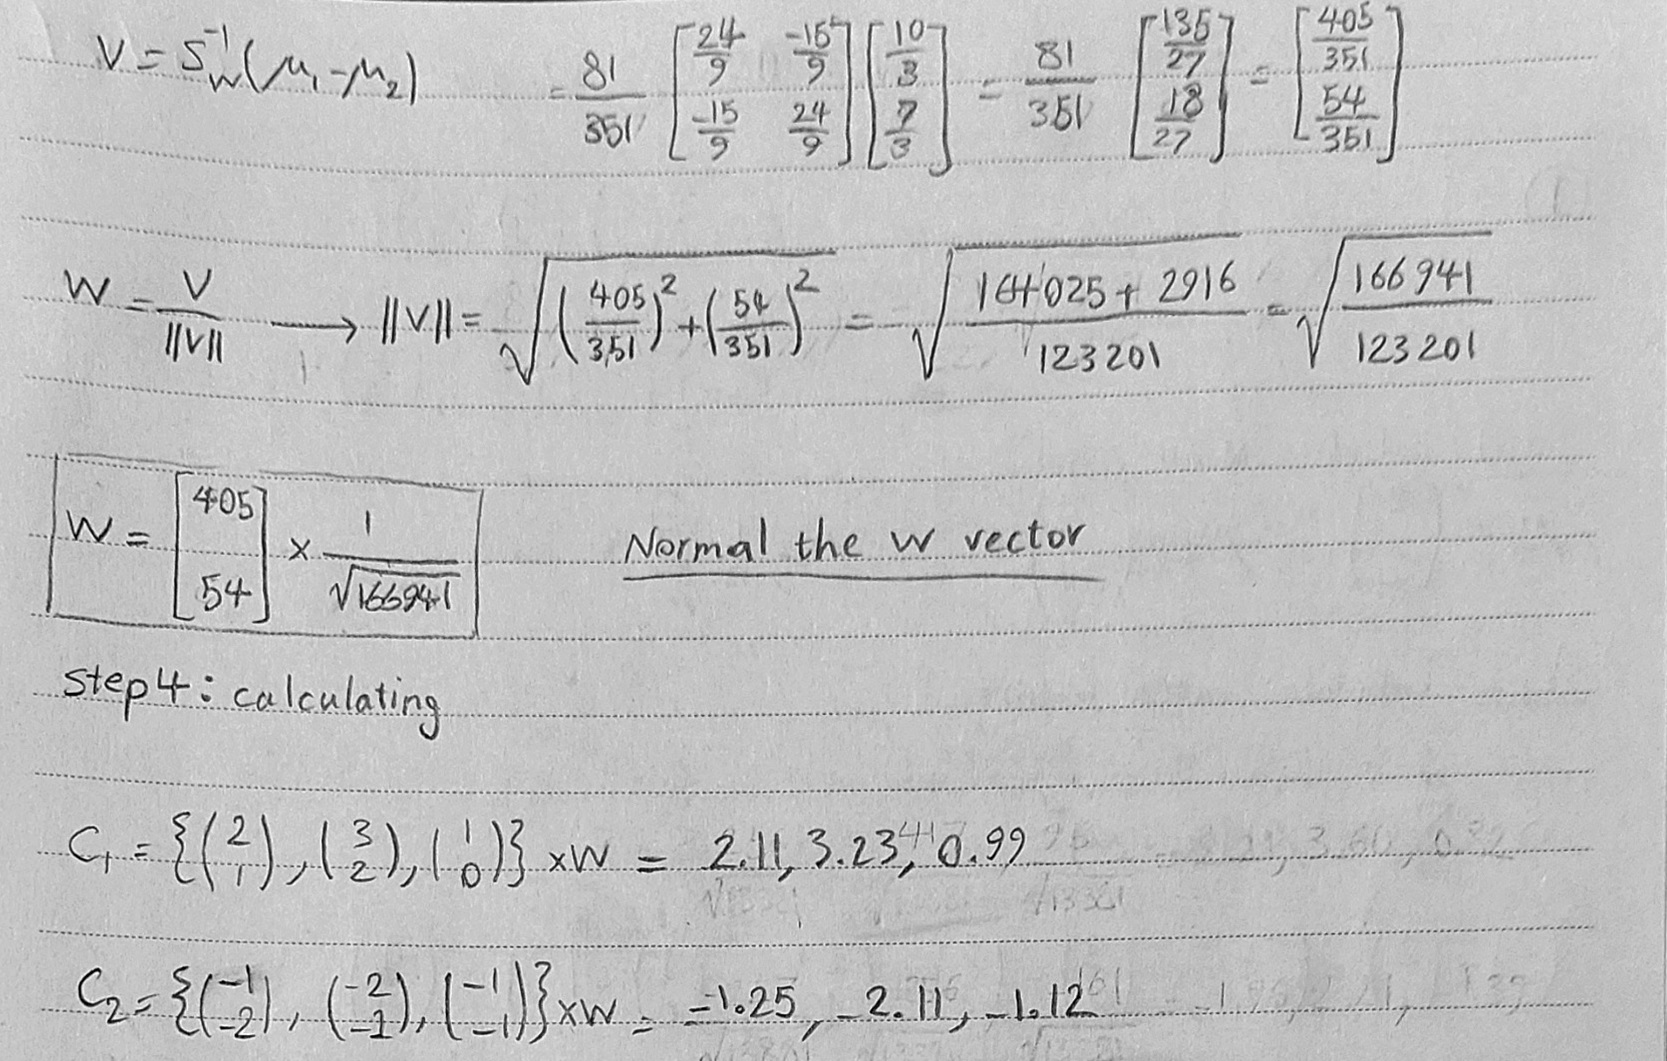 V = S_W^{-1}(μ₁-μ₂) = 81/351 [24/9 -15/9; -15/9 24/9] [10/3; 7/3] = 81/351 [135/27; 18/27] = [405/351; 54/351]
W = V/||V|| ⟶ ||V|| = √((405/351)² + (54/351)²) = √((164025 + 2916)/123201) = √(166941/123201)
W = [405; 54] × 1/√166941 Normal the w vector
step4: calculating
C₁ = {(2 1), (3 2), (1 0)} ×W = 2.11, 3.23, 0.99
C₂ = {(-1 -2), (-2 -1), (-1 -1)} ×W = -1.25, -2.11, -1.12